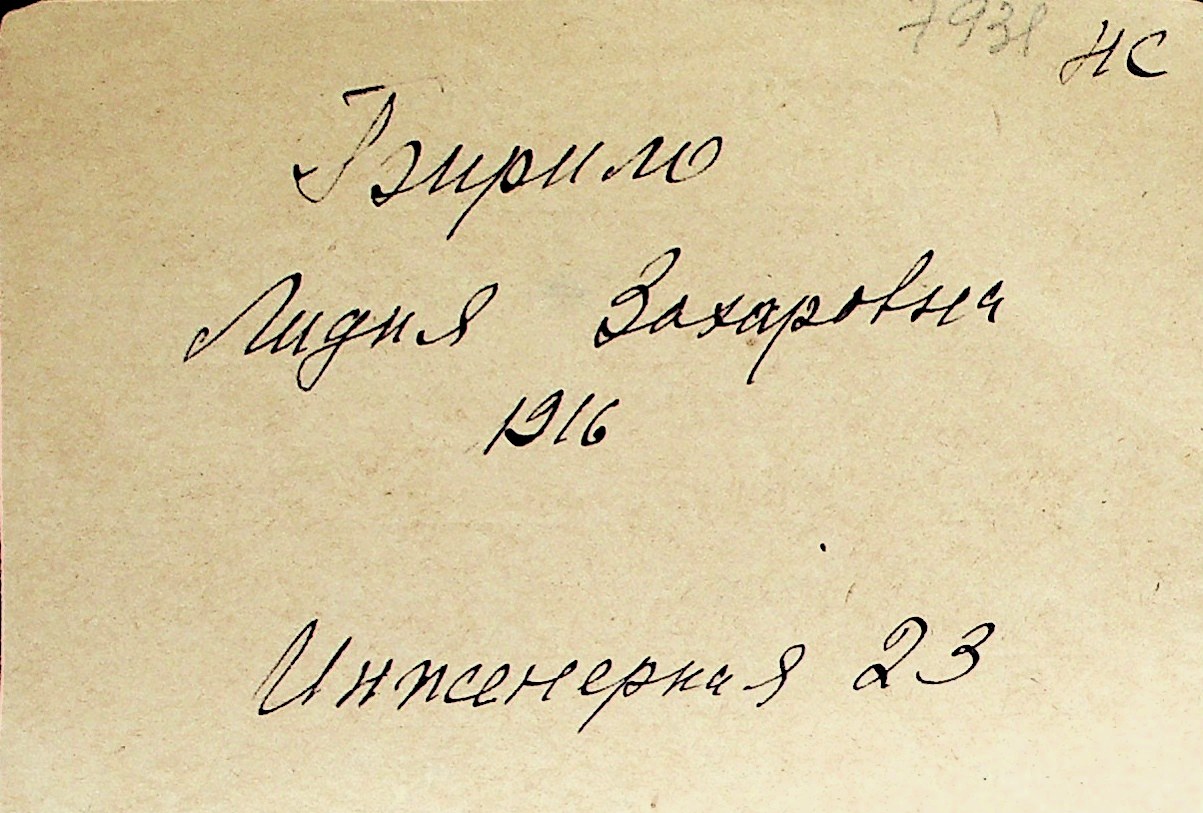 7931 НС
Лидия Захаровна
1916
Инженерная 23